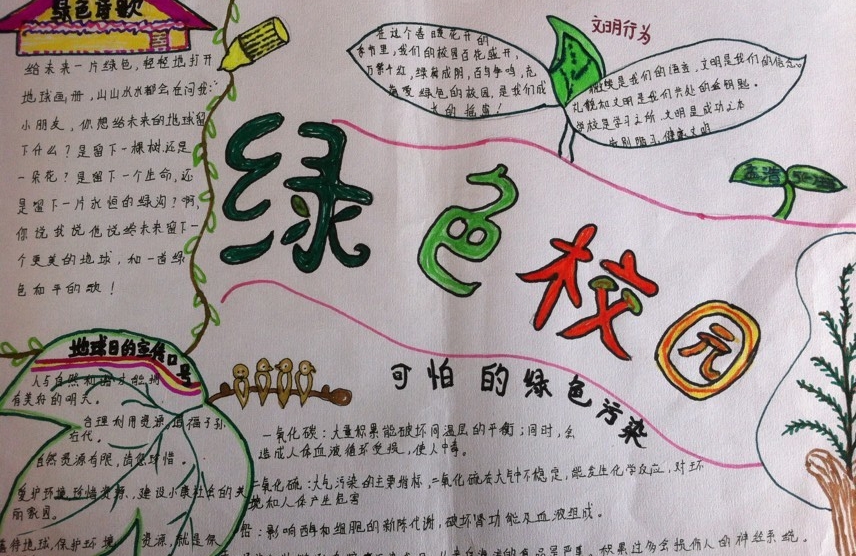 绿色童歌
给未来一片绿色,轻轻地打开
地球画册,山山水水都会在问我:
小朋友,你想给未来的地球留
下什么?是留下一棵树,还是
一朵花?是留下一个生命,还
是留下一片永恒的绿沟?啊,
你说我说他说给未来留下一
个更美的地球,和一首绿
色和平的歌!
在这个春暖花开的
季节里,我们的校园百花盛开,
万紫千红,绿树成阴,百鸟争鸣,
绿色的校园,是我们成
长的摇篮!
文明行为
是我们的语言,文明是我们的信念。
礼貌和文明是我们共处的金钥匙。
学校是学习之所,文明是成功之本
告别陋习,健康文明
绿色校园
地球日的宣传口号
人与自然和
有美好的明天。
合理利用资源,造福子孙
近代。
自然资源有限,请您珍惜。
爱护环境,珍惜资源,建设小康社会的美
丽家园。
善待地球,保护环境 资源,就是保
可怕的绿色污染
一氧化碳:大量积累能破坏同温层的平衡;同时,会
造成人体血液循环受损,使人中毒。
二氧化硫:大气污染的主要指标,二氧化硫在大气中不稳定,能发生化学反应,对环
境和人体产生危害
铅:影响酶和细胞的新陈代谢,破坏肾功能及血液组成。
积累过多会损伤人的神经系统。